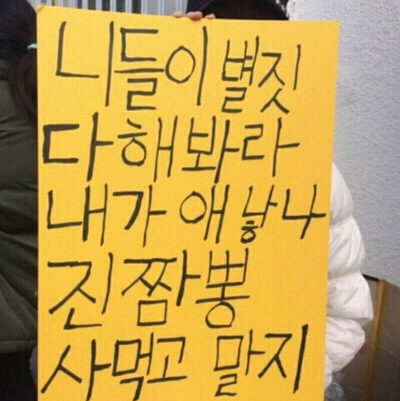 니들이 별짓
다 해봐라
내가 애 낳나
진짬뽕
사먹고 말지